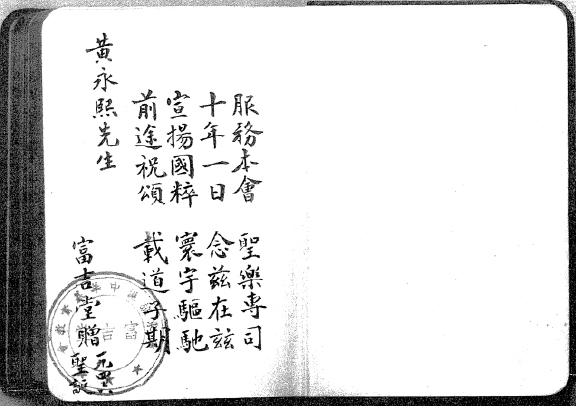 服務本會 聖樂專司
十年一日 念茲在茲
宣揚國粹 寰宇驅馳
前途祝頌 載道子期
黃永熙先生
富吉堂贈
聖誕
富吉